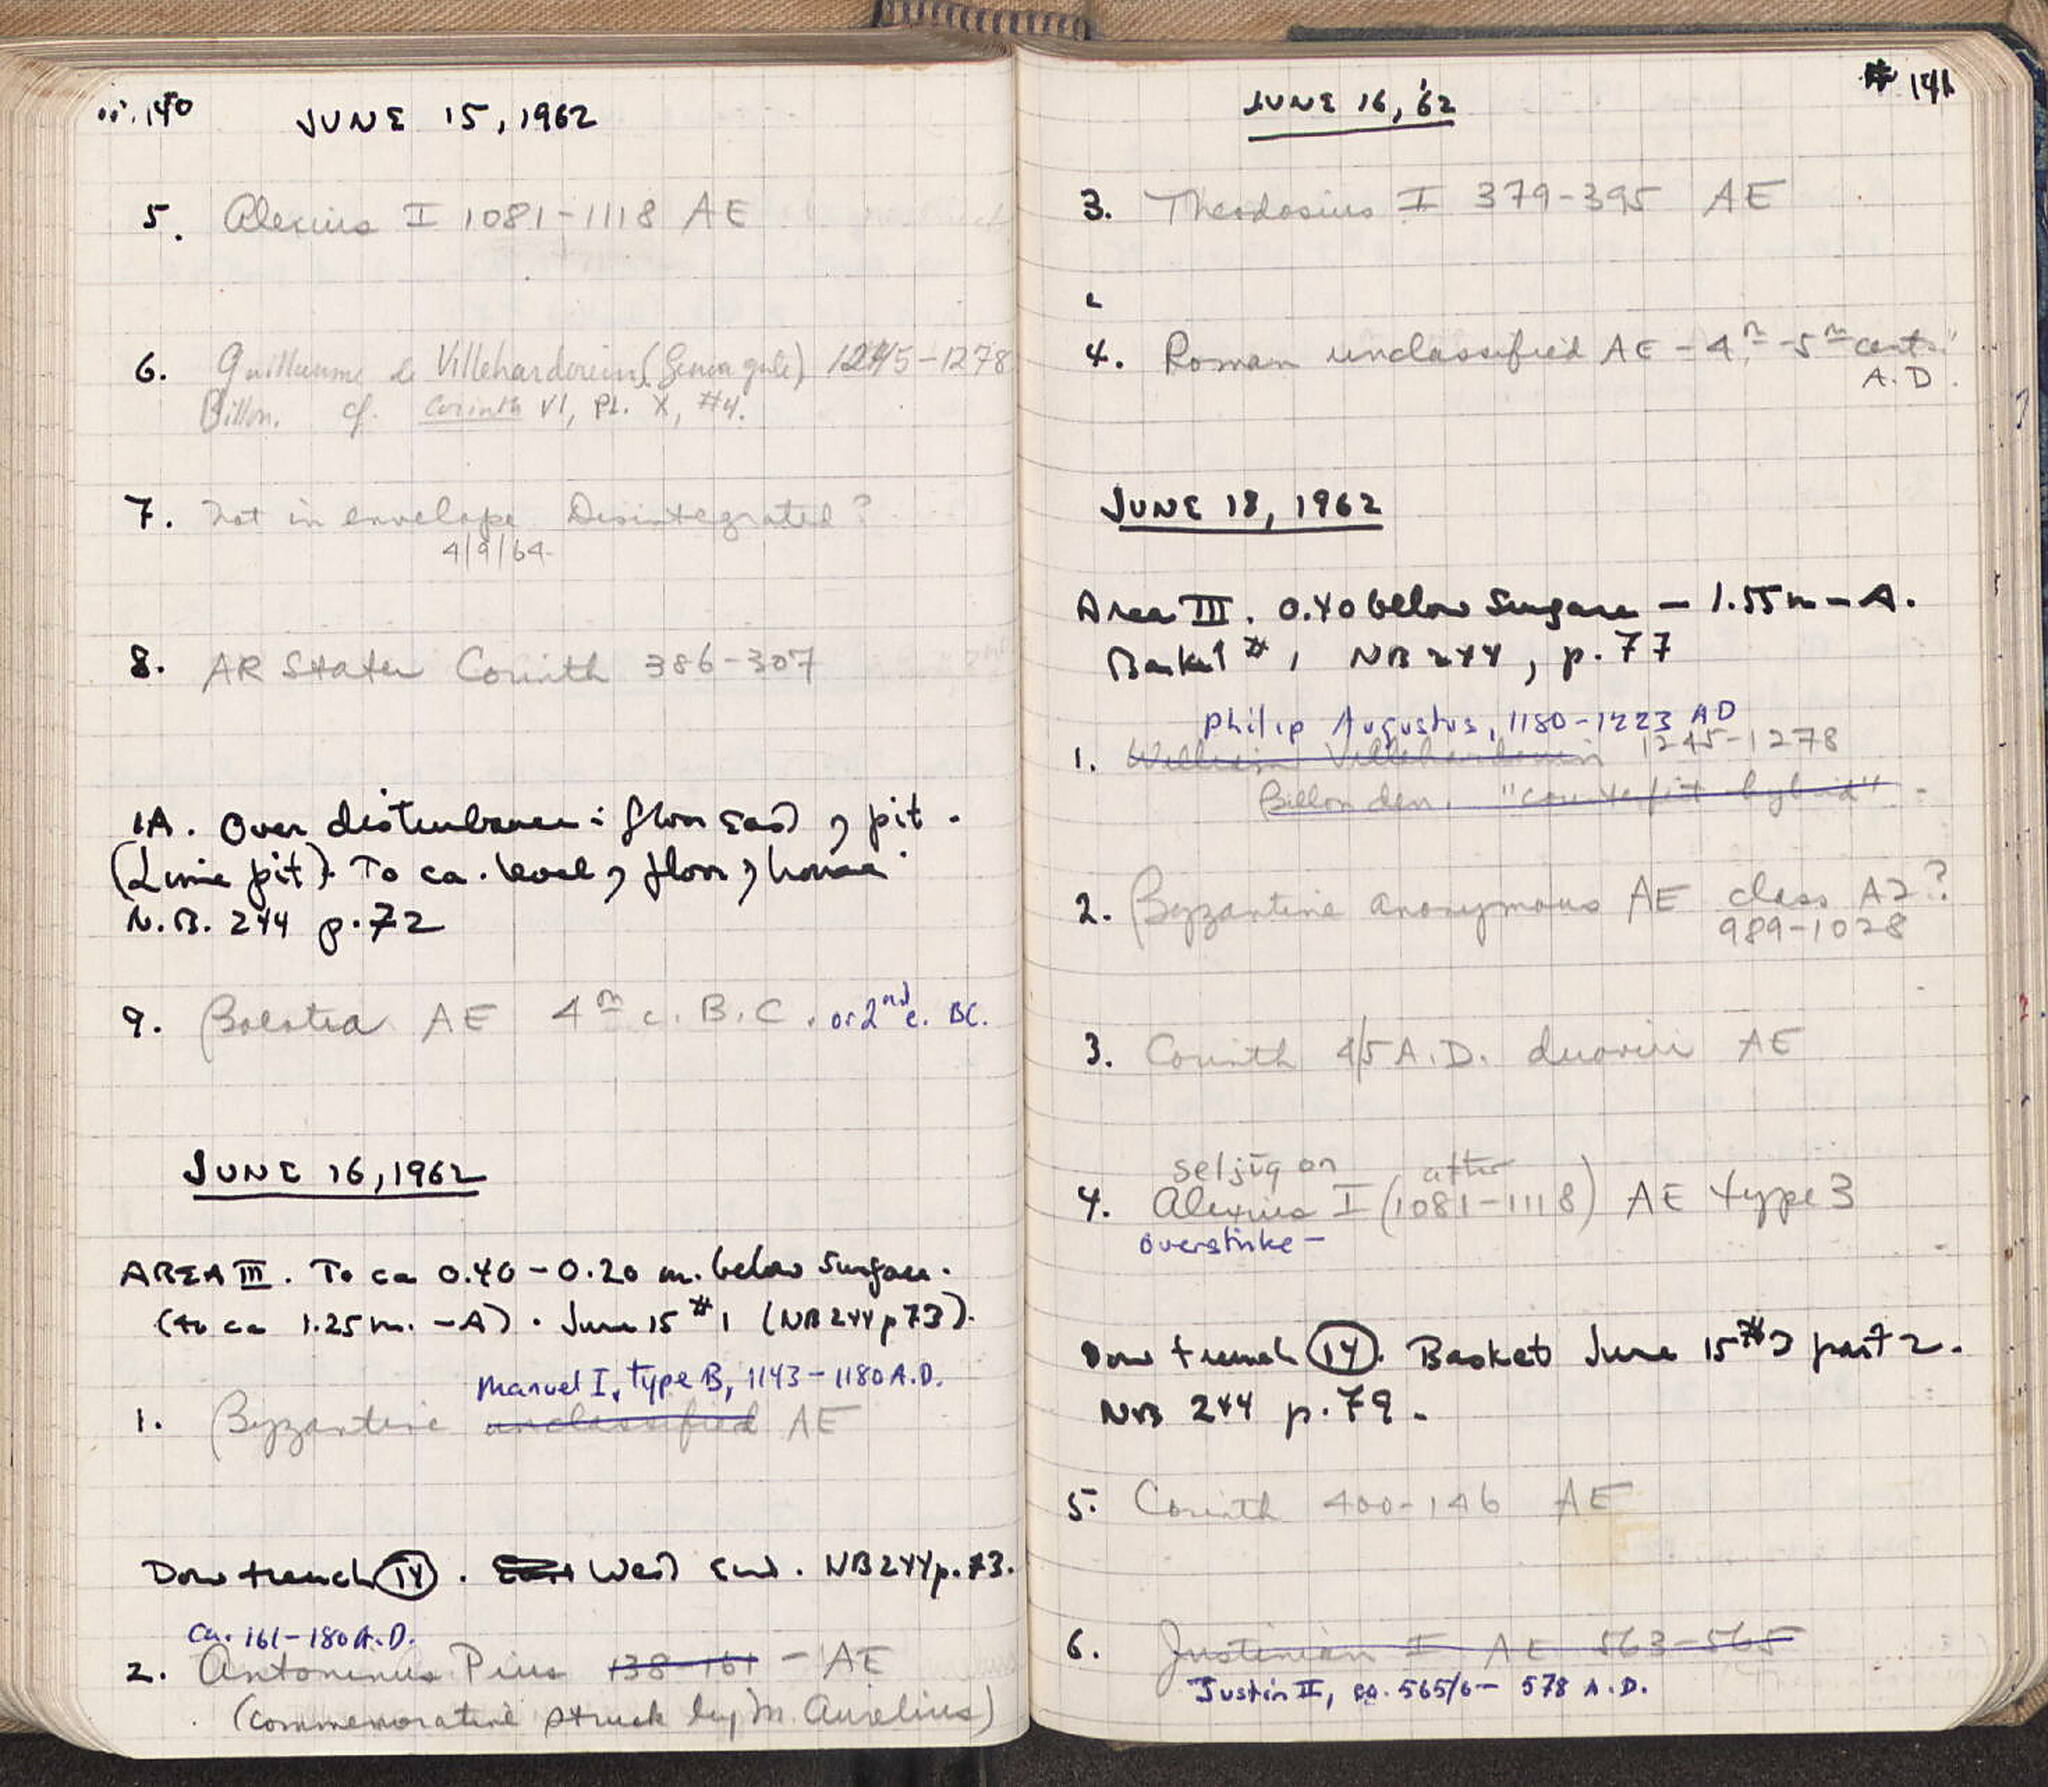 140
JUNE 15, 1962
5. Alexius I 1081-1118 AE
6. Guillaume de Villehardouin ( ) 1245-1278
Billon. cf. Corinth VI, PL. X, #4.
7. Not in envelope Disintegrated?
4/9/64
8. AR Stater Corinth 386-307
1A. Over disturbance: floor East of pit.
(Lime pit). To ca. level of floor of house.
N.B. 244 p.72
9. Boeotia AE 4th c. B.C. or 2nd c. BC.
JUNE 16, 1962
AREA III. To ca 0.40-0.20 m. below Surface.
(to ca 1.25m. -A). June 15 #1 (NB244 p73).
Manuel I, type B, 1143-1180 A.D.
1. Byzantine unclassified AE
Dow trench 14. East West End. NB244 p.73.
Ca. 161-180 A.D.
2. Antoninus Pius 138-161 - AE
(commemorative struck by M. Aurelius)
# 141
JUNE 16, '62
3. Theodosius I 379-395 AE
4. Roman unclassified AE - 4th-5th cents.
A.D.
JUNE 18, 1962
Area III. 0.40 below Surface - 1.55m-A.
Basket #1 NB 244, p.77
Philip Augustus, 1180-1223 AD
1. William Villehardouin 1245-1278
Billon den. "counterfeit hybrid"
2. Byzantine anonymous AE class A2?
989-1028
3. Corinth 4/5 A.D. duoviri AE
seljūq on after
4. Alexius I (1081-1118) AE type 3
overstrike -
Dow trench 14. Basket June 15 #2 part 2.
NB 244 p.79.
5. Corinth 400-146 AE
6. Justinian I AE 563-565
Justin II, ca. 565/6- 578 A.D.